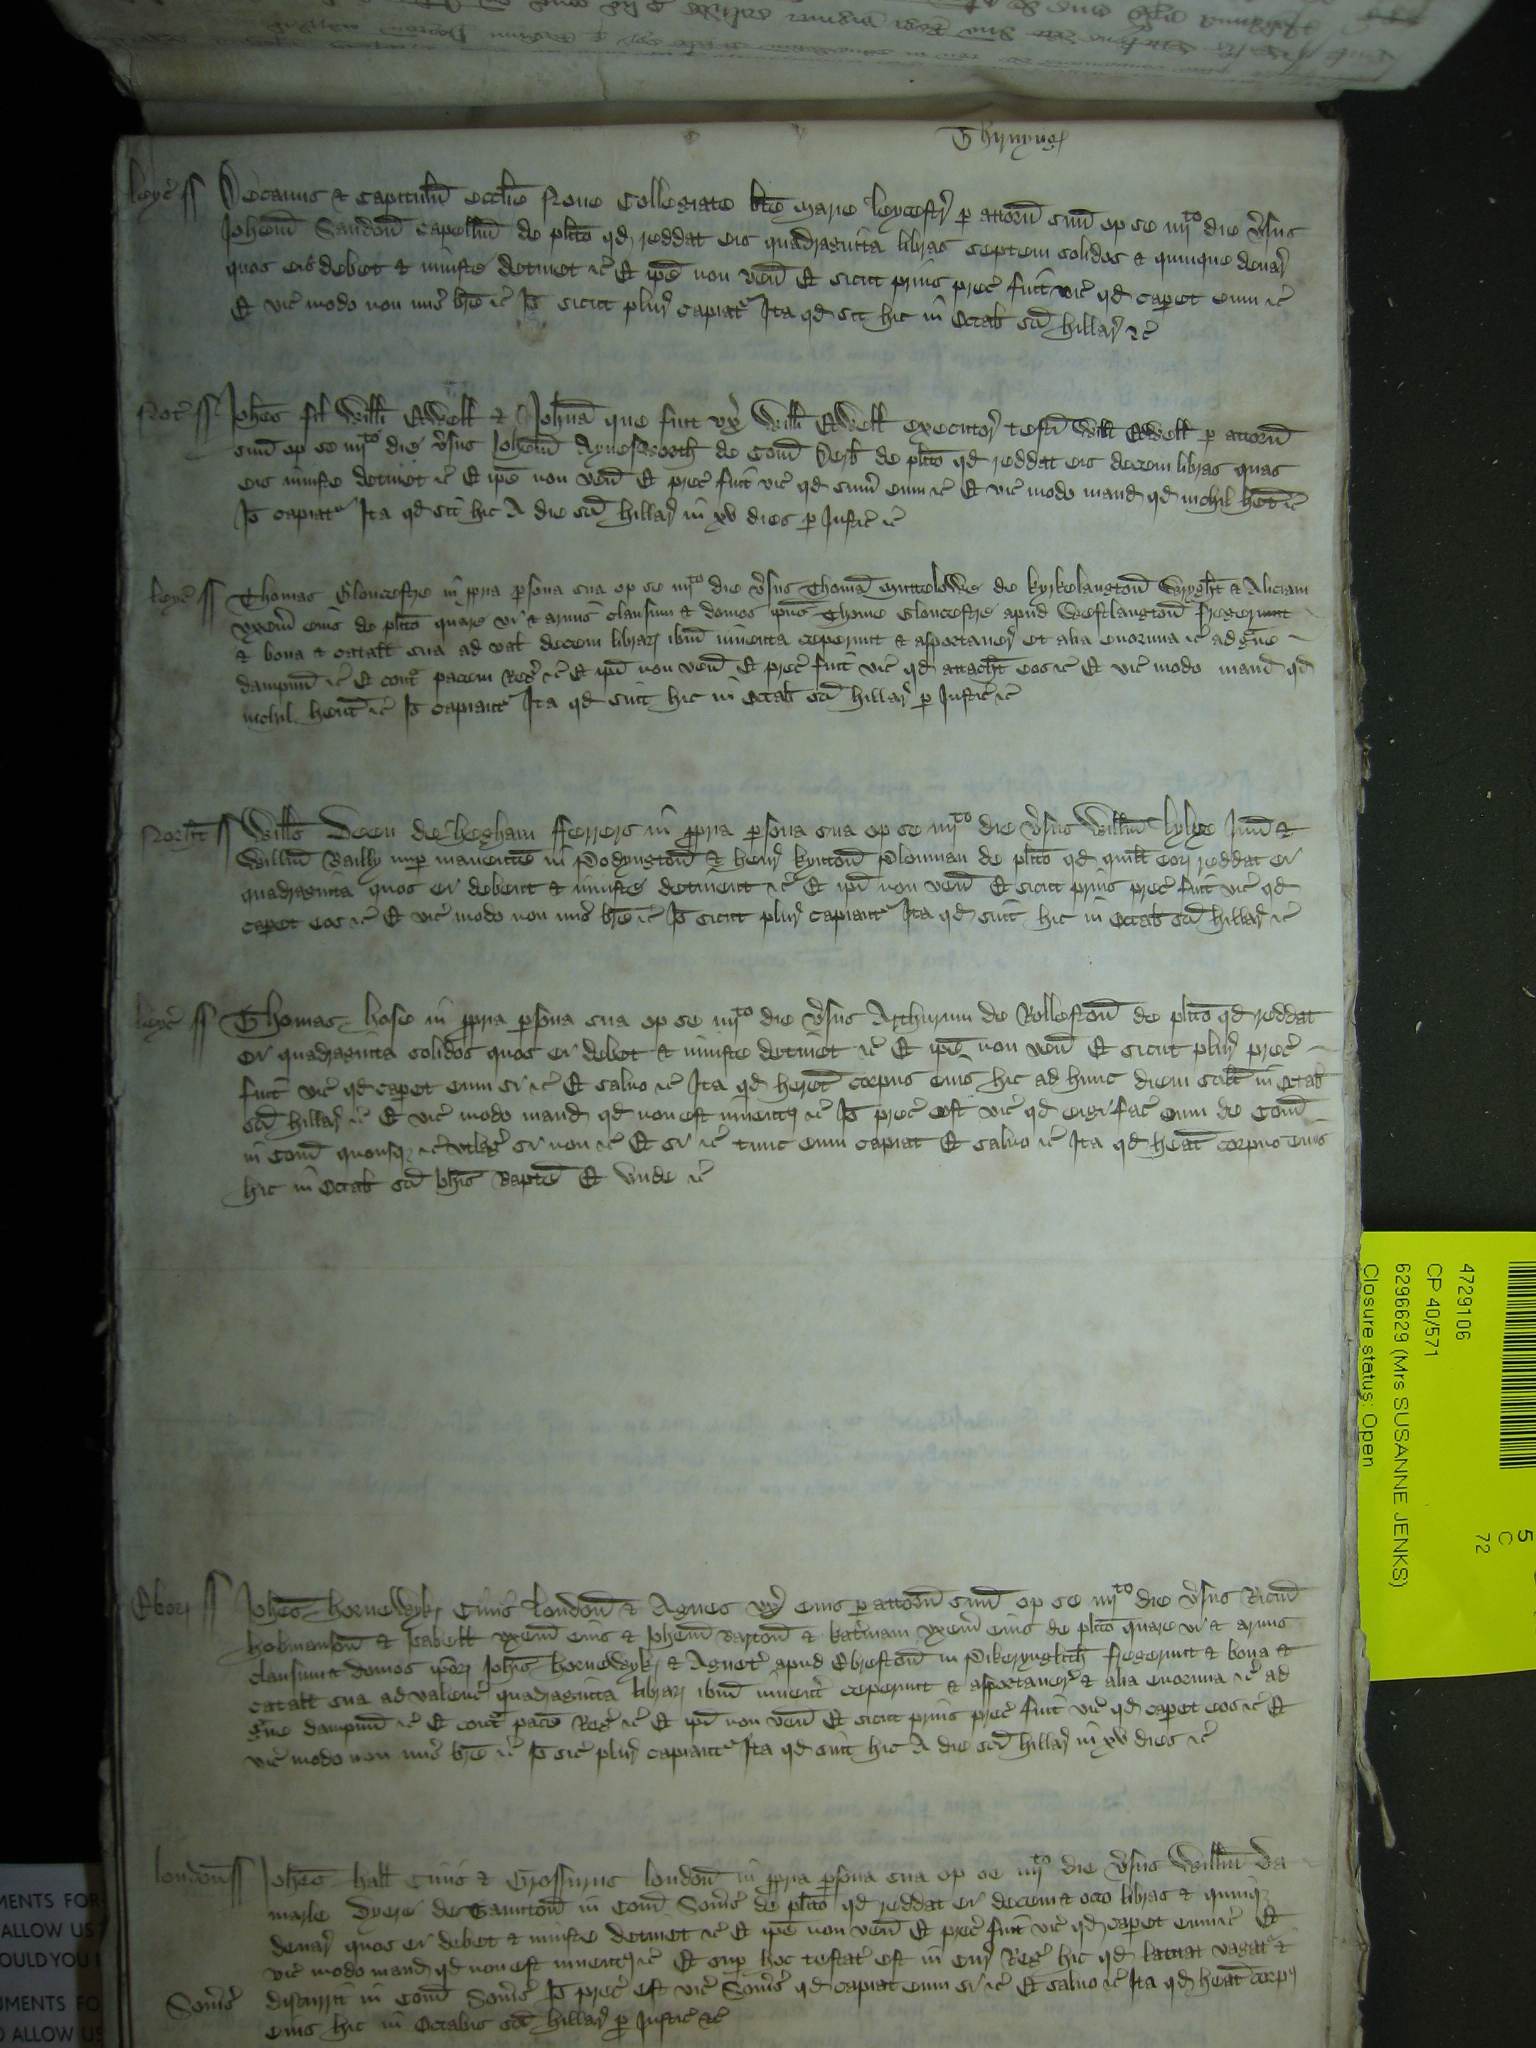 Thirnyng
Leyc' ss Decanus & Capitulu' eccl'ie Noue Collegiate b'te Marie Leycestr' p' attorn' suu' op' se iiijto die v'sus
Joh'em Sandon' Capell'm de pl'ito qd' reddat eis quadraginta libras septem solidos & quinque denar'
quos eis debet & iniuste detinet &c' Et ip'e non ven' Et sicut prius prec' fuit vic' qd' caperet eum &c'
Et vic' modo non mis' br'e &c' Io' sicut plur' capiat' Ita qd' sit hic in Octab' s'ci Hillar' &c'
Not' ss Joh'es fil' Will'i Elwell & Joh'na que fuit vx' Will'i Elwell executor' testi' Will'i Elwell p' attorn'
suu' op' se iiijto die v'sus Joh'em Aynesworth de Com' Derb' de pl'ito qd' reddat eis decem libras quas
eis iniuste detinet &c' Et ip'e non ven' Et prec' fuit vic' qd' sum' eum &c' Et vic' modo mand' qd' nichil h'et &c'
Io' capiat' Ita qd' sit hic A die s'ci Hillar' in xv dies p' Justic' &c'
Leyc' ss Thomas Gloucestre in p'pria p'sona sua op' se iiijto die v'sus Thoma' de Kyrkelangton' Wryght & Aliciam
vxem' eius de pl'ito quare vi & armis clausum & domos ip'ius Thome Gloucestre apud Westlangton' fregerunt
& bona & catall' sua ad val' decem librar' ibid'm inuenta ceperunt & asportauer' et alia enormia &c' ad g'ue
dampnu' &c' Et cont' pacem Reg' &c' Et ip'i non ven' Et prec' fuit vic' qd' attach' eos &c' Et vic' modo mand' qd'
nichil h'ent &c' Io' capiant' Ita qd' sint hic in Octab' s'ci Hillar' p' Justic' &c'
Norht' ss Will's Deen de Hegham Ferrers in p'pria p'sona sua op' se iiijto die v'sus Will'm Juu' &
Will'm Bailly nup' manentem in Podyngton' & Henr' Kynton' Plouman de pl'ito qd' quil't eor' reddat ei
quadraginta quos ei debent & iniuste detinent &c' Et ip'i non ven' Et sicut prius prec' fuit vic' qd'
caperet eos &c' Et vic' modo non mis' br'e &c' Io' sicut plur' capiant' Ita qd' sint hic in Octab' s'ci Hillar' &c'
Leyc' ss Thomas Hose in p'pria p'sona sua op' se iiijto die v'sus Arthurum de Rolleston' de pl'ito qd' reddat
ei quadraginta solidos quos ei debet & iniuste detinet &c' Et ip'e non ven' Et sicut plur' prec'
fuit vic' qd' caperet eum si &c' Et saluo &c' Ita qd' heret corpus eius hic ad hunc diem scil't in Octab'
s'ci Hillar' &c' Et vic' modo mand' qd' non est inuent' &c' Io' prec' est vic' qd' exigi fac' eum de Com'
in Com' quousq' &c' vtlag' si non &c' Et si &c' tunc eum capiat Et saluo &c' Ita qd' heat corpus eius
hic in Octab' s'ci Joh'is Bapte' Et vnde &c'
Ebor' ss Joh'es Hornewyk' Ciuis London' & Agnes vx' eius p' attorn' suu' op' se iiijto die v'sus Ric'm
& Isabell' vxem' eius & Joh'em Barton' & Kat'inam vxem' eius de pl'ito quare vi & armis
clausum & domos ip'or' Joh'is Hornewyk' & Agnet' apud Ebreston' in Pikerynglith' fregerunt & bona &
catall' sua ad valenc' quadraginta librar' ibid'm inuent' ceperunt & asportauer' & alia enormia &c' ad
g'ue dampnu' &c' Et cont' pace' Reg' &c' Et ip'i non ven' Et sicut prius prec' fuit vic' qd' caperet eos &c' Et
vic' modo non mis' br'e &c' Io' sic' plur' capiant' Ita qd' sint hic A die s'ci Hillar' in xv dies &c'
London' ss Joh'es Hall Ciuis & Grossarius London' in p'pria p'sona sua op' se iiijto die v'sus Will'm Da
marle Dyere de Taunton' in Com' Som's' de pl'ito qd' reddat ei decem & octo libras & quinq'
denar' quos ei debet & iniuste detinet &c' Et ip'e non ven' Et prec' fuit vic' qd' caperet eum &c' Et
vic' modo mand' qd' non est inuent' &c' Et sup' hoc testat' est in Cur' Reg' hic qd' latitat vagat' &
Som's' discurrit in Com' Som's' Io' prec' est vic' Som's' qd' capiat eum si &c' Et saluo &c' Ita qd' heat corp'
eius hic in Octabis s'ci Hillar' p' Justic' &c'
4729106
CP 40/571
6296629 (Mrs SUSANNE JENKS)
Closure status: Open
5
C
72
MENTS FOR
ALLOW US
OULD YOU
UMENTS FO
O ALLOW US